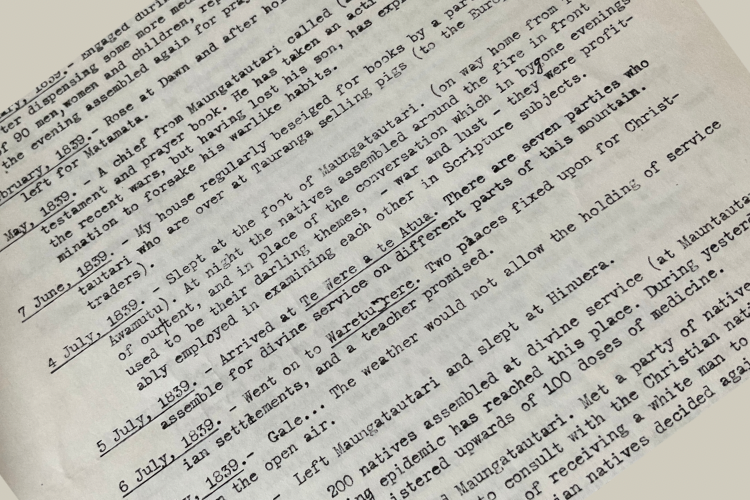 1839.- Engaged durin
ter dispensing some more med
of 90 men, women and children, rep
the evening assembled again for pray
bruary, 1839.- Rose at Dawn and after ho
left for Matamata.
May, 1839. - A chief from Maungatautari called (
testament and prayer book. He has taken an acti
the recent wars, but having lost his son, has exp
mination to forsake his warlike habits.
7 June, 1839. - My house regularly beseiged for books by a par
tautari who are over at Tauranga selling pigs (to the Euro
traders).
4 July, 1839. - Slept at the foot of Maungatautari. (on way home from
Awamutu). At night the natives assembled around the fire in front
of our tent, and in place of the conversation which in bygone evenings
used to be their darling themes, - war and lust - they were profit-
ably employed in examining each other in Scripture subjects.
5 July, 1839. - Arrived at Te Were a te Atua. There are seven parties who
assemble for divine service on different parts of this mountain.
6 July, 1839. - Went on to Waretuṛere. Two places fixed upon for Christ-
ian settlements, and a teacher promised.
1839.- Gale... The weather would not allow the holding of service
n the open air.
- Left Maungatautari and slept at Hinuera.
200 natives assembled at divine service (at Mauntauta
ing epidemic has reached this place. During yester
istered upwards of 100 doses of medicine.
Maungatautari. Met a party of native
to consult with the Christian nat
of receiving a white man to
ian natives decided agai